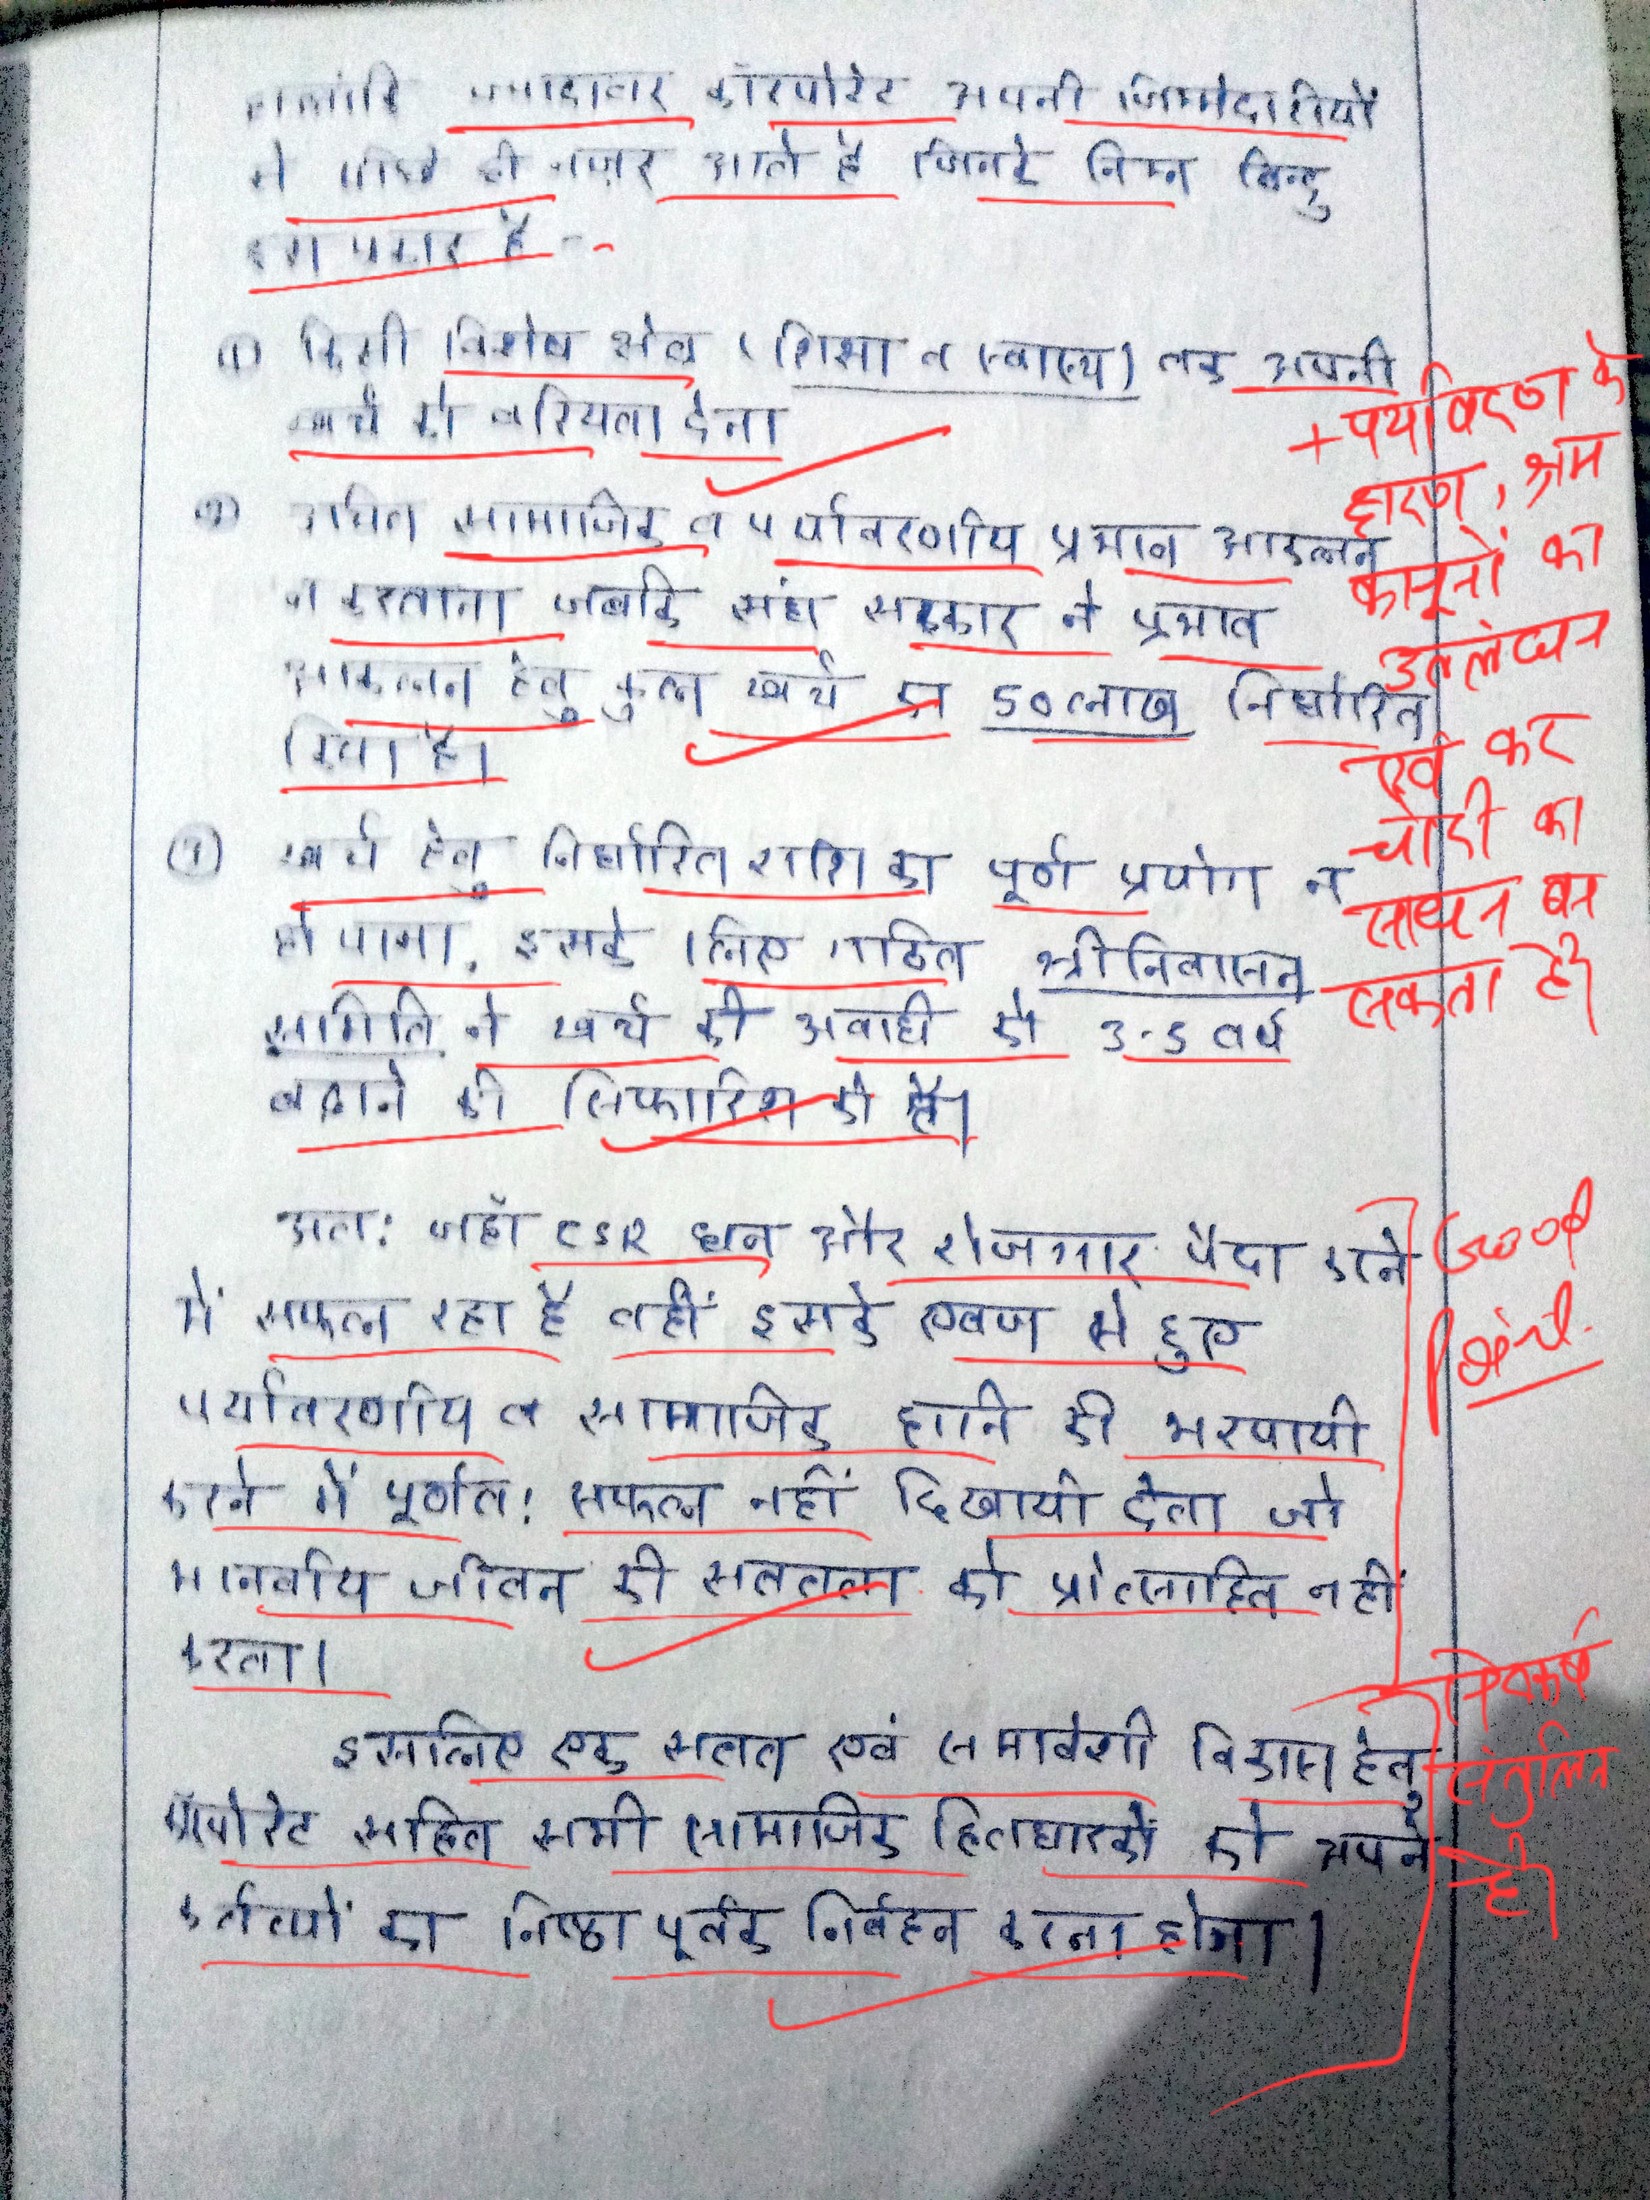 हालांकि ज्यादातर कॉरपोरेट अपनी जिम्मेदारियों
से पीछे ही नज़र आते है जिनके निम्न बिन्दु
इस प्रकार है -
(1) किसी विशेष क्षेत्र (शिक्षा व स्वास्थ्य) तक अपनी
खर्च को वरियता देना
(2) उचित सामाजिक व पर्यावरणीय प्रभाव आकलन
न करवाना जबकि संघ सरकार ने प्रभाव
आकलन हेतु कुल खर्च का 50 लाख निर्धारित
किया है।
(3) खर्च हेतु निर्धारित राशि का पूर्ण प्रयोग न
हो पाना, इसके लिए गठित श्रीनिवासन
समिति ने खर्च की अवधी को 3-5 वर्ष
बढ़ाने की सिफारिश की है।
+ पर्यावरण के
क्षरण, श्रम
कानूनों का
उल्लंघन
एवं कर
चोरी का
साधन बन
सकता है।
अतः जहाँ CSR धन और रोजगार पैदा करने
में सफल रहा है वहीं इसके एवज में हुए
पर्यावरणीय व सामाजिक हानि की भरपायी
करने में पूर्णतः सफल नहीं दिखायी देता जो
मानवीय जीवन की सततता को प्रोत्साहित नहीं
करता।
Good
Point.
इसलिए एक सतत एवं समावेशी विकास हेतु
कॉर्पोरेट सहित सभी सामाजिक हितधारकों को अपने
कर्तव्यों का निष्ठा पूर्वक निर्वहन करना होगा।
निष्कर्ष
संतुलित
है।